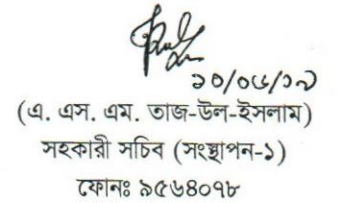 ১০/০৬/১৯
(এ. এস. এম. তাজ-উল-ইসলাম)
সহকারী সচিব (সংস্থাপন-১)
ফোনঃ ৯৫৬৪০৭৮